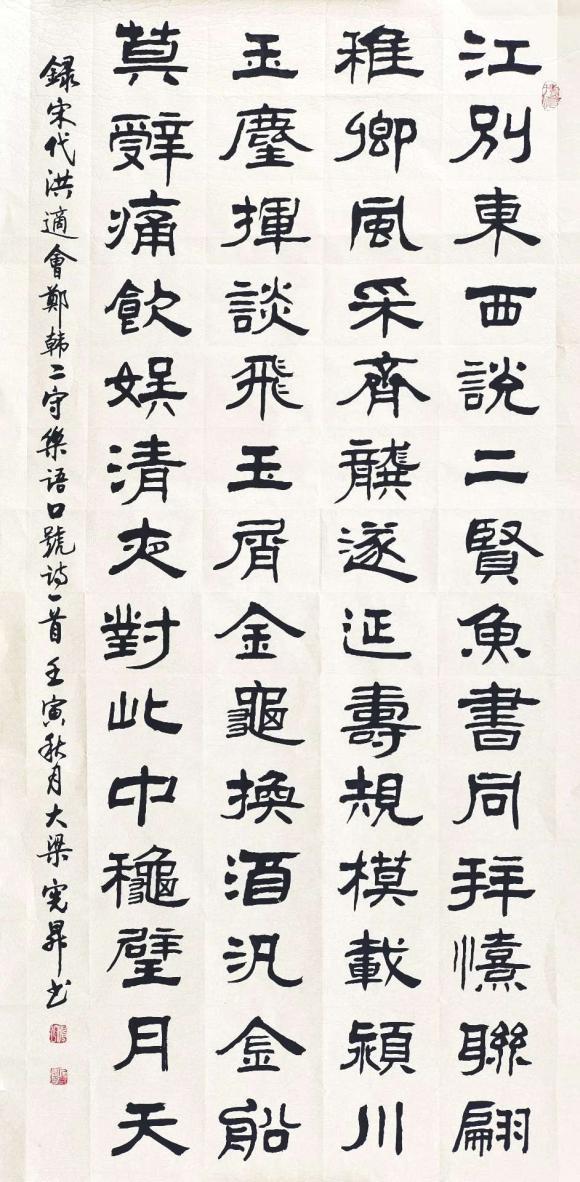 江別東西說二賢魚書同拜憘聯翩
稚卿風采齊龔遂延壽規模載潁川
玉麈揮談飛玉屑金龜換酒汎金船
莫辭痛飲娛清夜對此中龝璧月天
録宋代洪適會鄭韓二守樂語口號詩一首 壬寅秋月大梁宪昇书